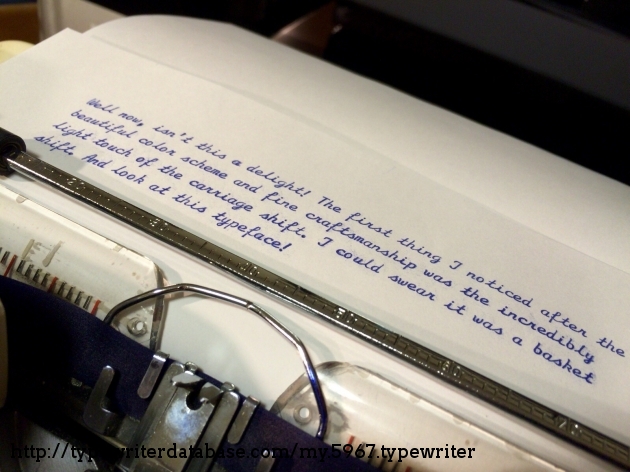 Well now, isn't this a delight! The first thing I noticed after the
beautiful color scheme and fine craftsmanship was the incredibly
light touch of the carriage shift. I could swear it was a basket
shift. And look at this typeface!
http://typewriterdatabase.com/my.5967.typewriter